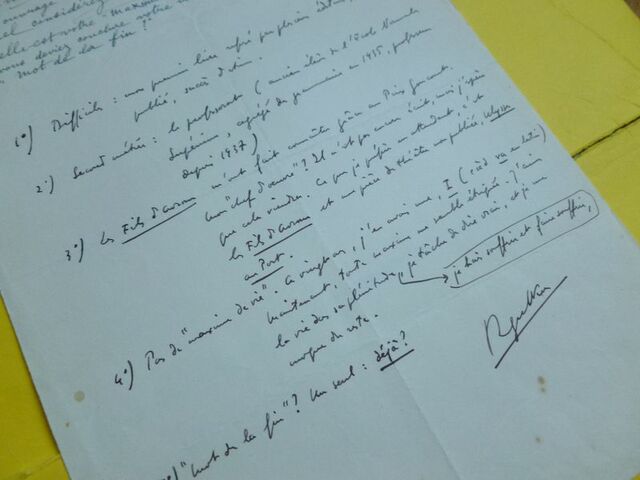 ouvrage
considérez
elle est votre "maxime
vous deviez conclure votre
mot de la fin ?
1°) Difficile : mon premier livre refusé par plusieurs
publié, succès d'estime.
2°) Second métier : le professorat (ancien élève de l'École Normale
Supérieure, agrégé de grammaire en 1935, professeur
depuis 1937)
3°) Les Fils d'Avrom m'ont fait connaître grâce au Prix Goncourt.
Mon "chef d'œuvre" ? Il n'est pas encore écrit, mais j'espère
que cela viendra. Ce que je préfère en attendant, c'est
les Fils d'Avrom et une pièce de théâtre non publiée, Ulysse
au Port.
4°) Pas de "maxime de vie". À vingt ans, j'en avais une, I (c'est à d va en latin)
Maintenant, toute maxime me semble étriquée. J'aime
la vie dans sa plénitude, je tâche de dire vrai, et je me
moque du reste.
je hais souffrir et faire souffrir,
"mot de la fin" ? Un seul : déjà ?